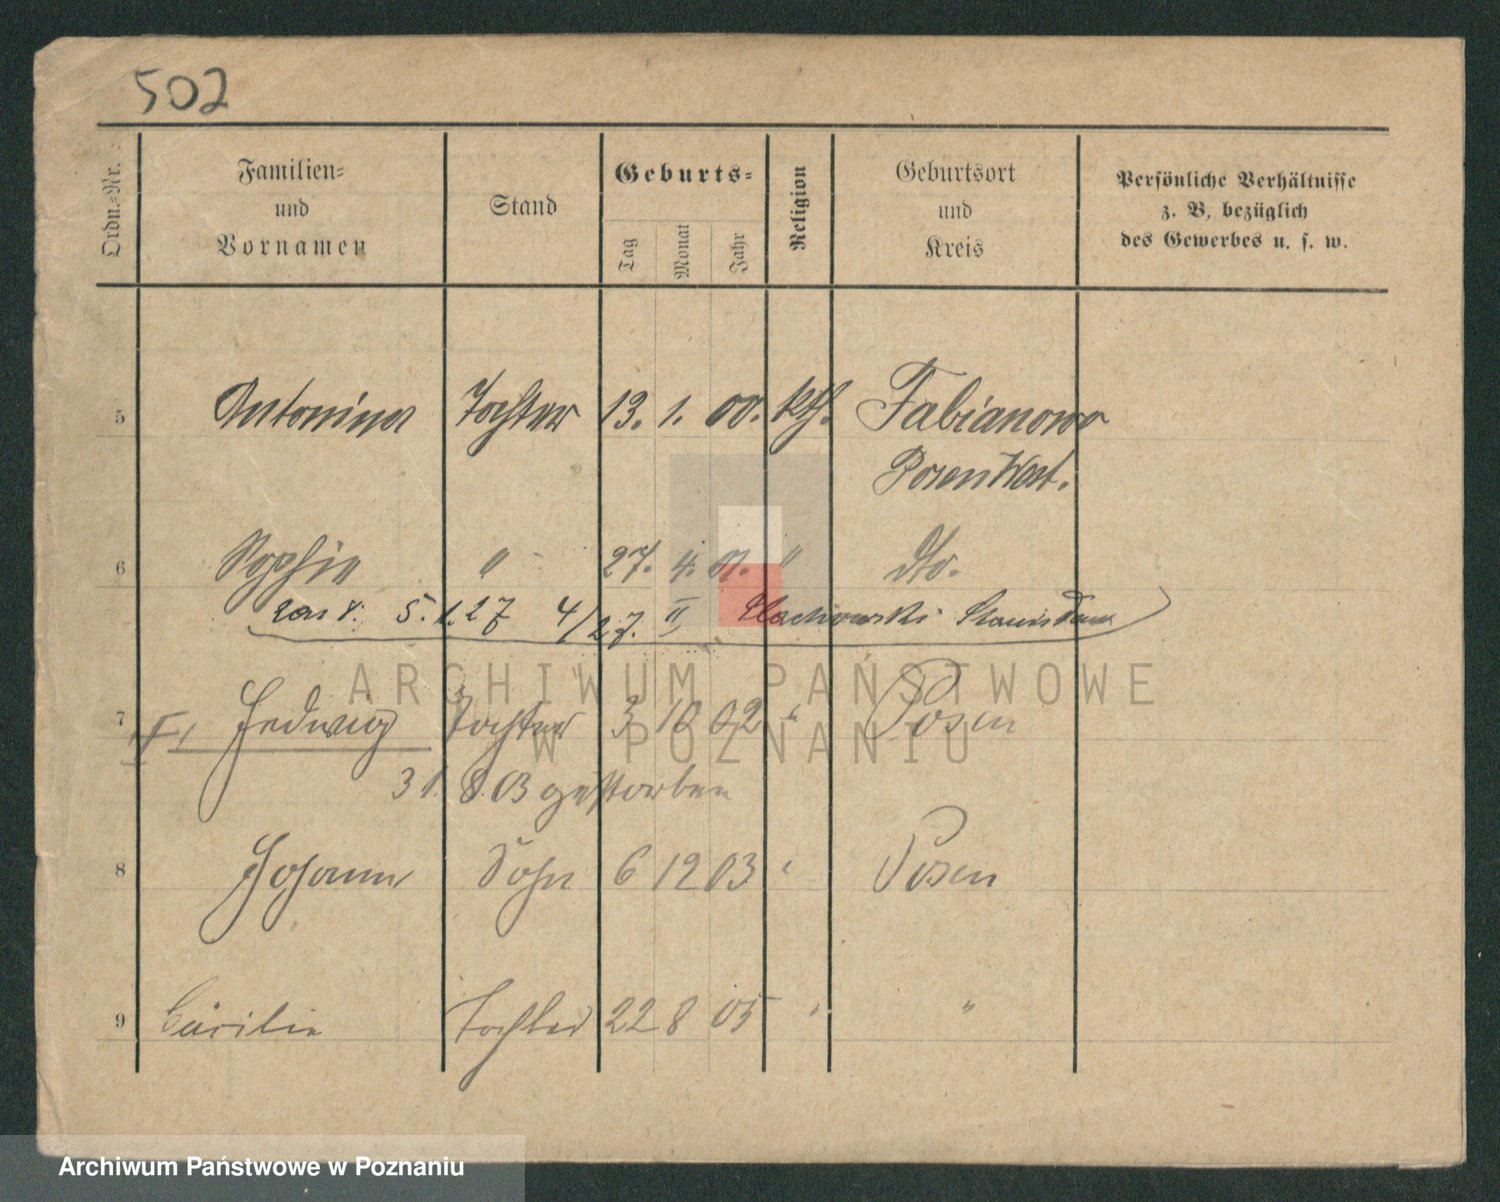 502
Ordn.-Nr. Familien- und Vornamen Stand Geburts- Tag Monat Jahr Religion Geburtsort und Kreis Persönliche Verhältnisse z. B. bezüglich des Gewerbes u. s. w.
5 Antonina Tochter 13. 1. 00. kth. Fabianowo
Posen West.
6 Sophie " 27. 4. 01. " dto.
5.1.27 4/27. II Stanisław
7 Hedwig Tochter 3 10 02 " Posen
31. 8. 03 gestorben
8 Johann Sohn 6 12 03 " Posen
9 Cäcilie Tochter 22 8 05 " "
ARCHIWUM PAŃSTWOWE
W POZNANIU
Archiwum Państwowe w Poznaniu